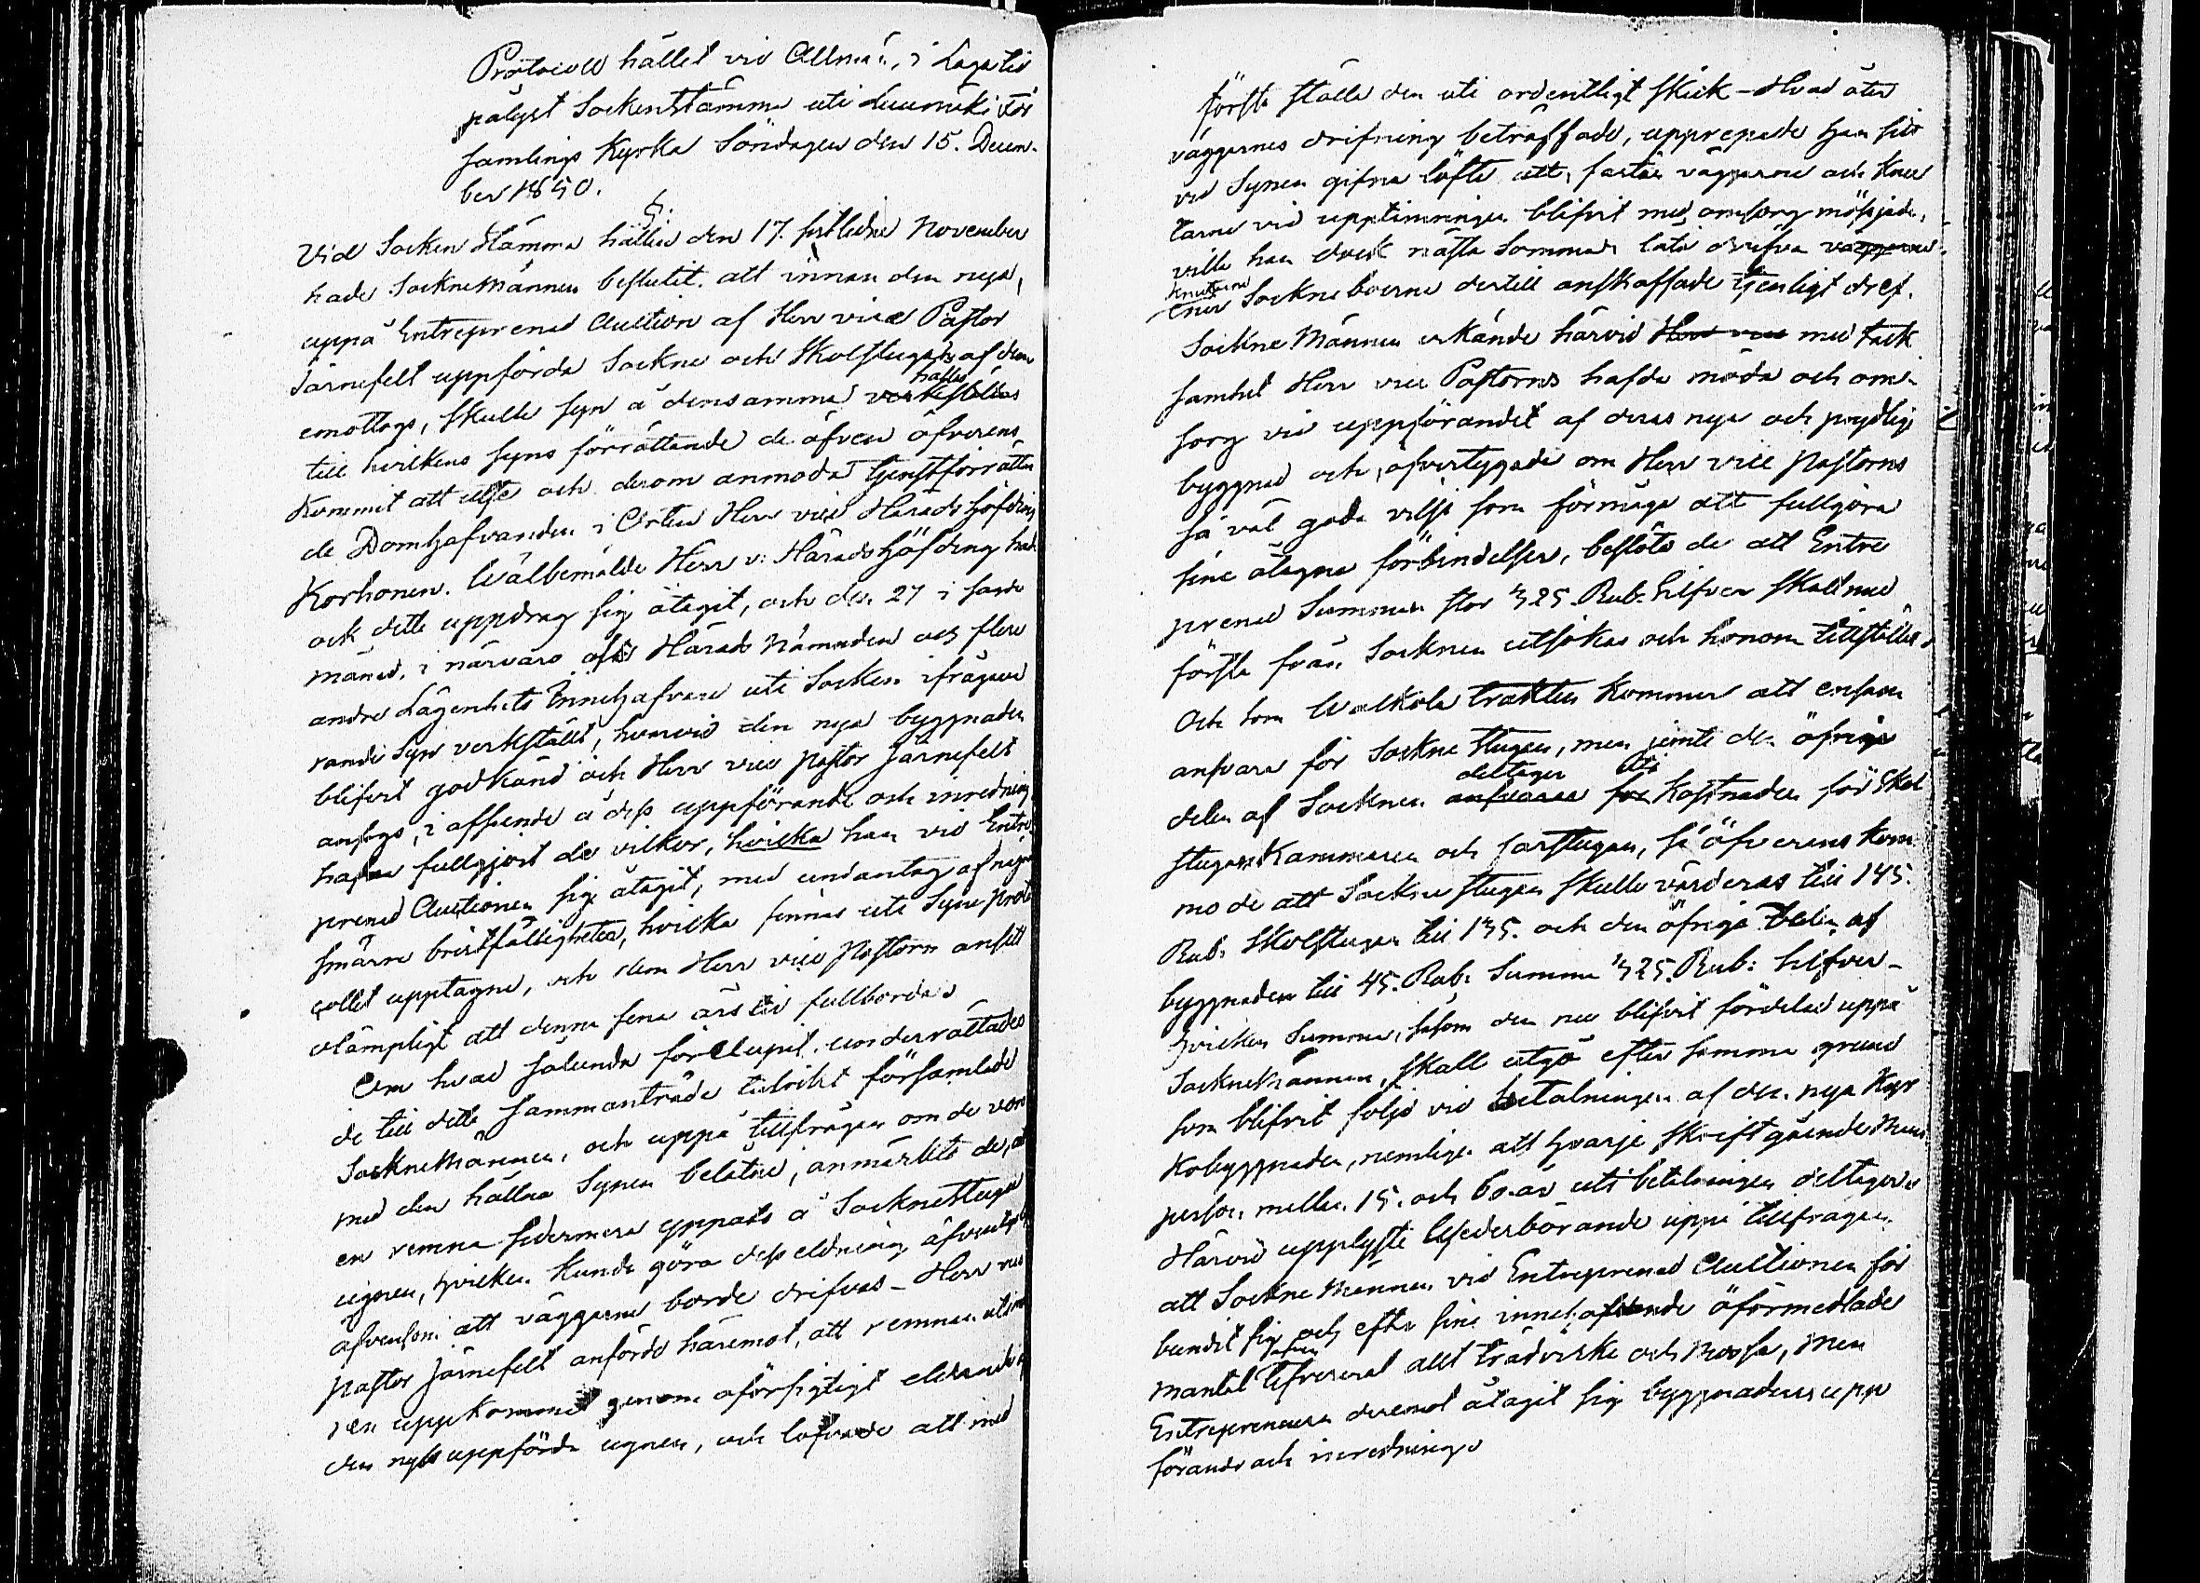 Protocoll hållet vid Allmän, i Laga tid
pålyst Sockenstämma uti Luumäki För
samlings Kyrka Söndagen den 15. Decem-
ber 1850.
§:
Vid Socken Stämma hållen den 17. sistledne November
hade Sockne Männen beslutit att innan den nya,
uppå Entreprenad Auction af Herr vice Pastor
Järnefelt uppförda Sockne och Skolstugan af dem
emottogs, skulle syn å densamma verkställas
hållas
till hvilkens syns förrättande de äfven öfverens
kommit att utse och derom anmoda Tjenstförrättan
de Domhafvanden i Orten Herr vice Häradshöfding
Korhonen. Wälbemälde Herr v: Häradshöfding had
ock detta uppdrag sig åtagit, och den 27 i samma
månad, i närvaro af Härads Nämnden och flere
andre Lägenhets Innehafvare uti Socken ifrågava
rande Syn verkställt, hvarvid den nya byggnaden
blifvit godkänd och Herr vice Pastor Järnefelt
ansågs, i afseende å dess uppförande och inredning
hafva fullgjort de vilkor, hvilka han vid Entre
prenad Auctionen sig åtagit, med undantag af några
smärre bristfälligheter, hvilka finnas uti Syne Proto
collet upptagne, och dem Herr vice Pastorn ansett
olämpligt att denna sena årstid fullborda.
Om hvad sålunda förelupit, underrättades
de till detta sammanträde talrikt församlade
Sockne Männen, och uppå tillfrågan om de voro
med den hållna Synen belåtne, anmärkte de, at
en remna sedermera yppats å Sockne Stugu
ugnen, hvilken kunde göra dess eldning äfventyrlig
äfvensom att väggarne borde drifvas – Herr vice
Pastor Järnefelt anförde häremot, att remnan
uppkommit genom oförsigtigt eldande
den nyss uppförda ugnen, och lofvade att med
första ställa den uti ordentligt skick – Hvad åter
väggarnes drifning beträffade, upprepade han sitt
vid Synen gifna löfte att, fastän väggarne och knu
tarne vid upptimringen blifvit med omsorg mossjade,
ville han dock nästa Sommar låta drifva väggarne.
knutarne
Sockneboerne dertill anskaffade tjenligt dref.
Sockne Männen erkände härvid med tack
samhet Herr vice Pastorns hafda möda och om-
sorg vid uppförandet af deras nya och prydlig
byggnad och, öfvertygade om Herr vice Pastorns
så väl goda vilja som förmåga att fullgöra
sine åtagna förbindelser, beslöto de att Entre
prenad Summan stor 325 Rub. Silfver skall med
första från Socknen utsökas och honom tillställas.
Och som Walkola trakten kommer att ensam
ansvara för Sockne Stugan, men jemte den öfriga
delen af Socknen ansvarar för kostnaden för Skol
deltager uti
stugans Kammaren och farstugan, så öfverens kom
mo de att Sockne Stugan skulle värderas till 145.
Rub: Skolstugan till 135. och den öfriga delen af
byggnaden till 45. Rub: Summa 325. Rub: Silfver –
hvilken Summa, såsom den nu blifvit fördelad uppå
Sockne Männen, skall utgå efter samma grund
som blifvit följd vid betalningen af den nya Kyr
kobyggnaden, nemligen att hvarje skriftgående Mans
person mellan 15. och 60. år uti betalningen deltager.
Härvid upplyste Wederbörande uppå tillfrågan
att Sockne Männen vid Entreprenad Auctionen för
bundit sig och efter sina innehafvande oförmedlade
mantal äfven lefvererat allt trädvirke och Mossa, Men
Entrepreneuren deremot åtagit sig byggnadens upp
förande och inredning.